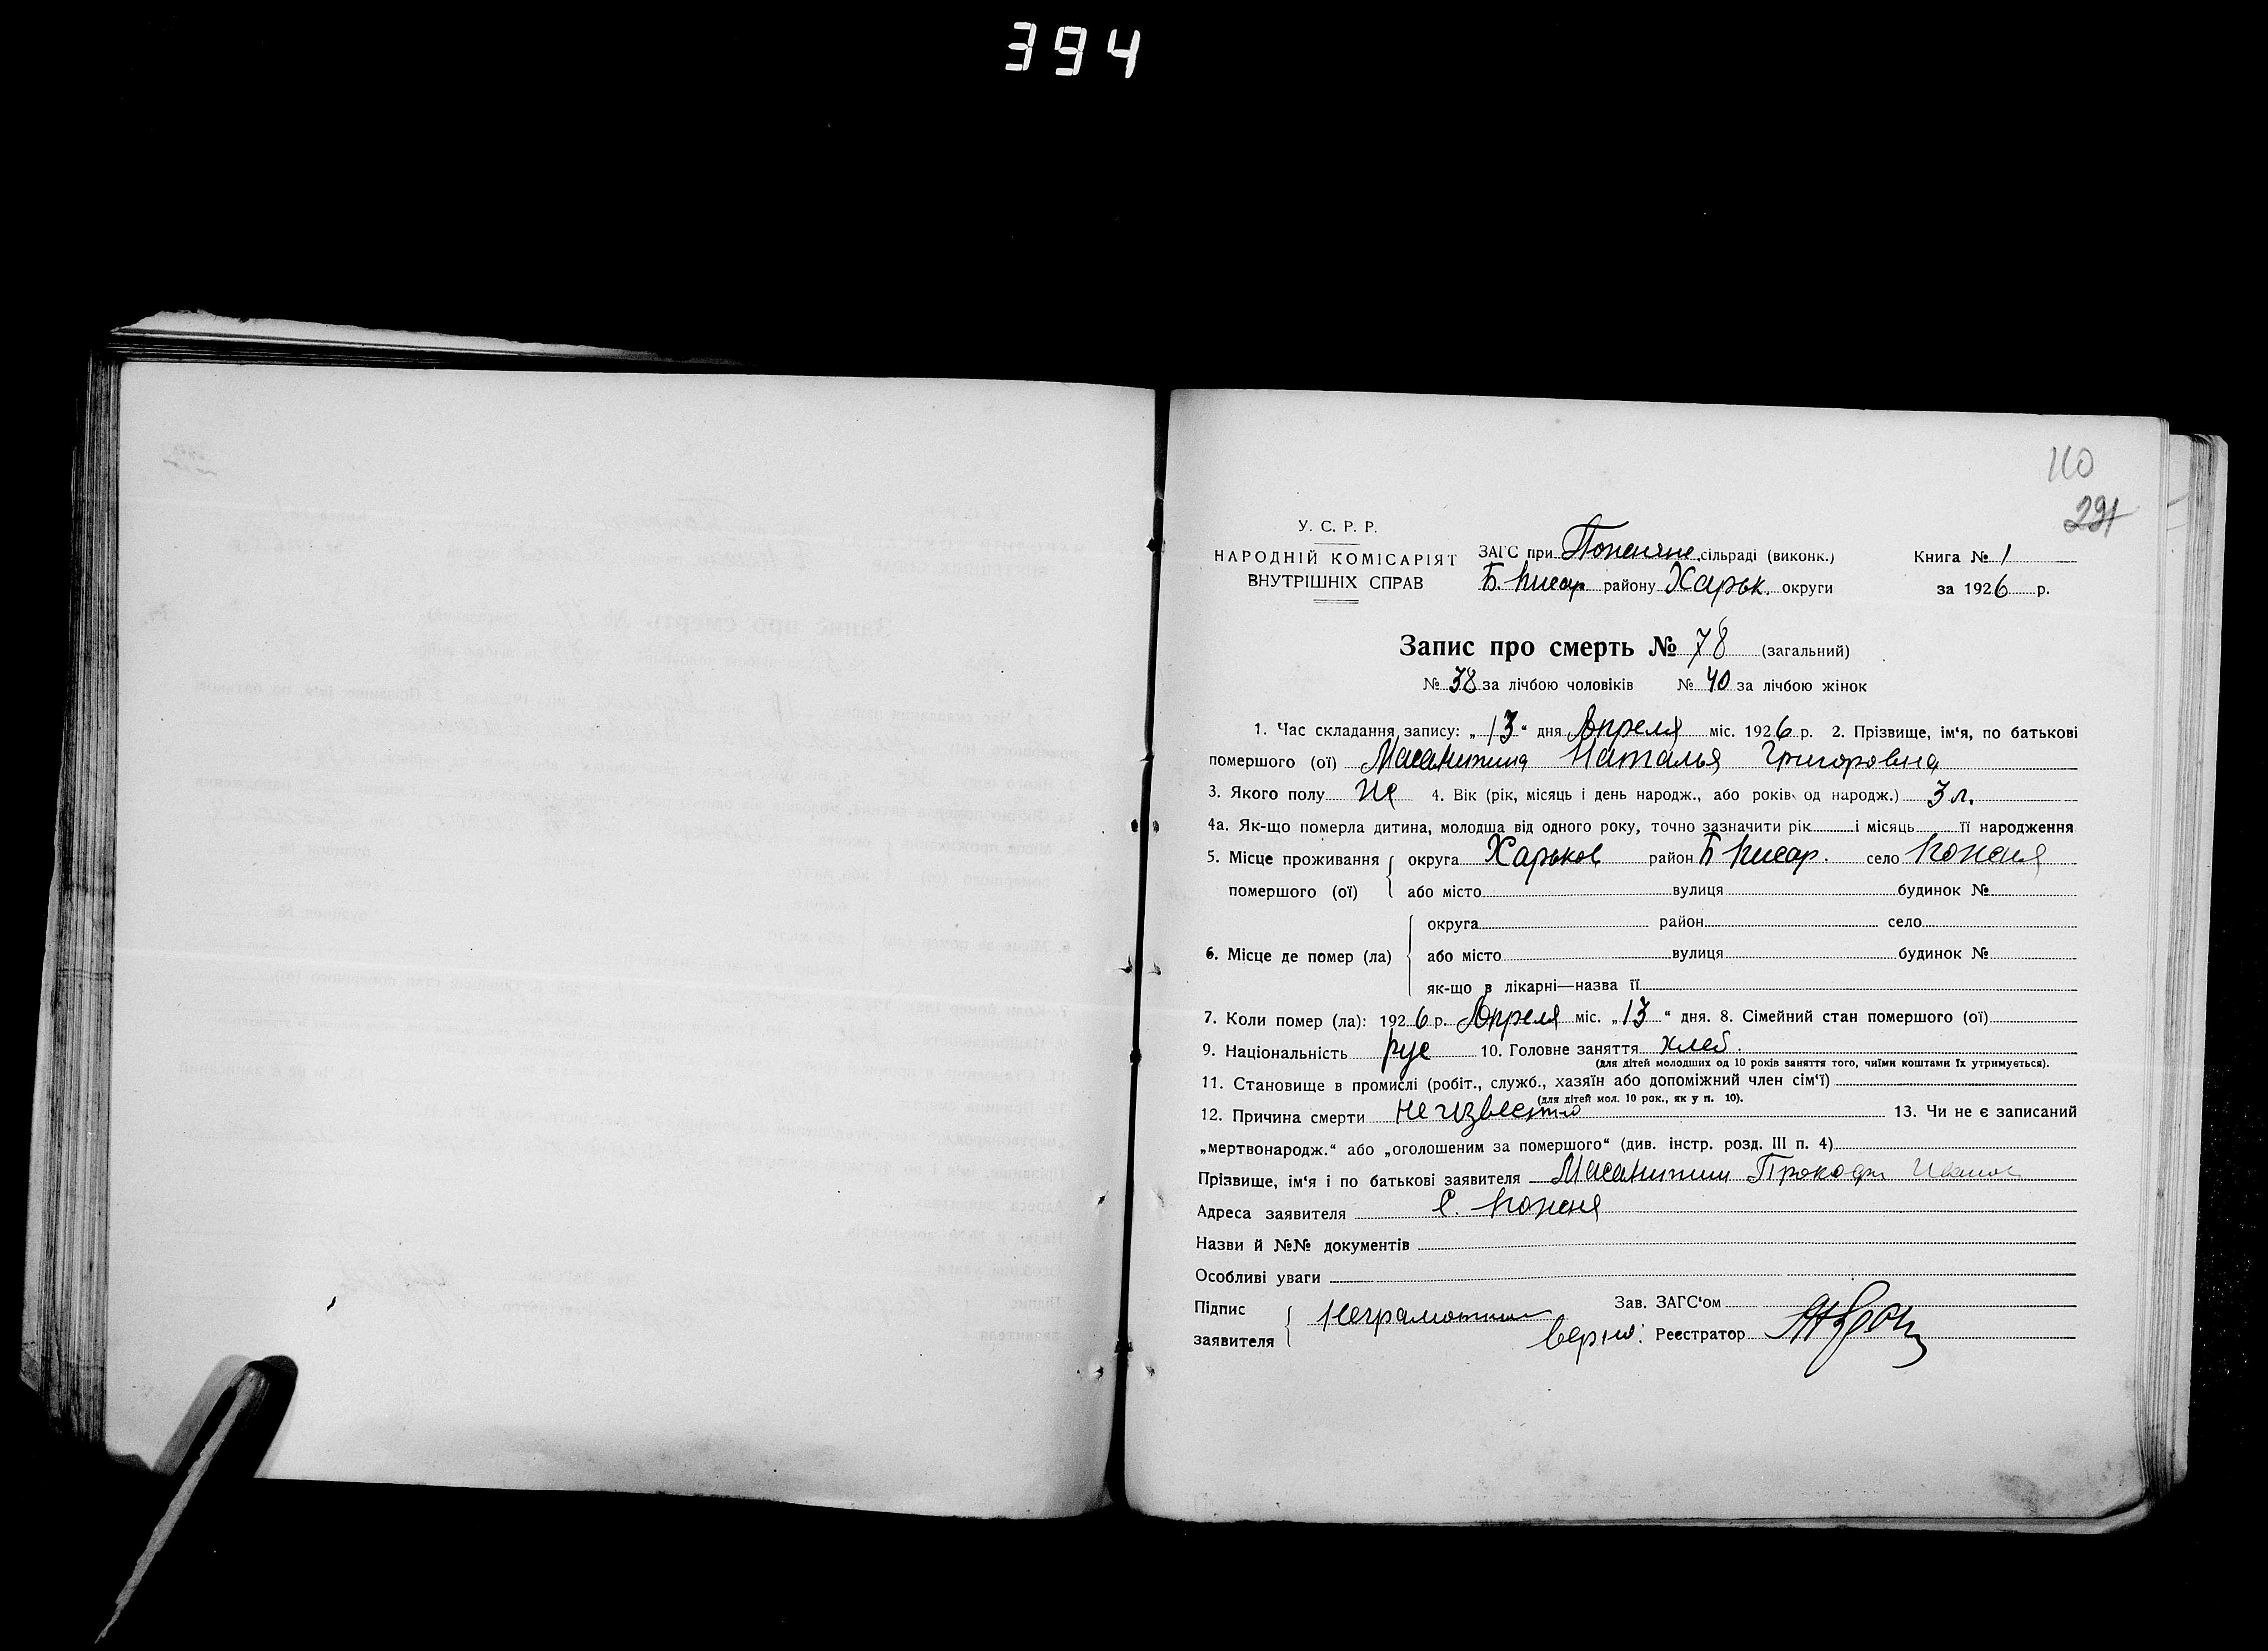 394
110
291
У. С. Р. Р.
НАРОДНІЙ КОМІСАРІЯТ
ВНУТРІШНІХ СПРАВ
ЗАГС при сільраді (виконк.)
Б. Писар району Харьк. округи
Книга № 1
за 1926 р.
Запис про смерть № 78 (загальний)
№ 38 за лічбою чоловіків № 40 за лічбою жінок
1. Час складання запису: „13“ дня Апреля міс. 1926 р. 2. Прізвище, ім‘я, по батькові
помершого (ої) Наталья Григоровна
3. Якого полу 4. Вік (рік, місяць і день народж., або років од народж.) 3 л.
4а. Як-що померла дитина, молодша від одного року, точно зазначити рік і місяць її народження
5. Місце проживання округа Харьков район Б Писар. село
помершого (ої) або місто вулиця будинок №
округа район село
6. Місце де помер (ла) або місто вулиця будинок №
як-що в лікарні—назва її
7. Коли помер (ла): 1926 р. Апреля міс. „13“ дня. 8. Сімейний стан помершого (ої)
9. Національність рус 10. Головне заняття хлеб.
(для дітей молодших од 10 років заняття того, чиїми коштами їх утримується).
11. Становище в промислі (робіт., служб., хазяїн або допоміжний член сім‘ї)
(для дітей мол. 10 рок., як у п. 10).
12. Причина смерти не известно 13. Чи не є записаний
„мертвонародж.“ або „оголошеним за помершого“ (див. інстр. розд. III п. 4)
Прізвище, ім‘я і по батькові заявителя Прокофи Иванов
Адреса заявителя с.
Назви й №№ документів
Особливі уваги
Підпис
заявителя
Неграмотний
Зав. ЗАГС‘ом
верно: Реєстратор